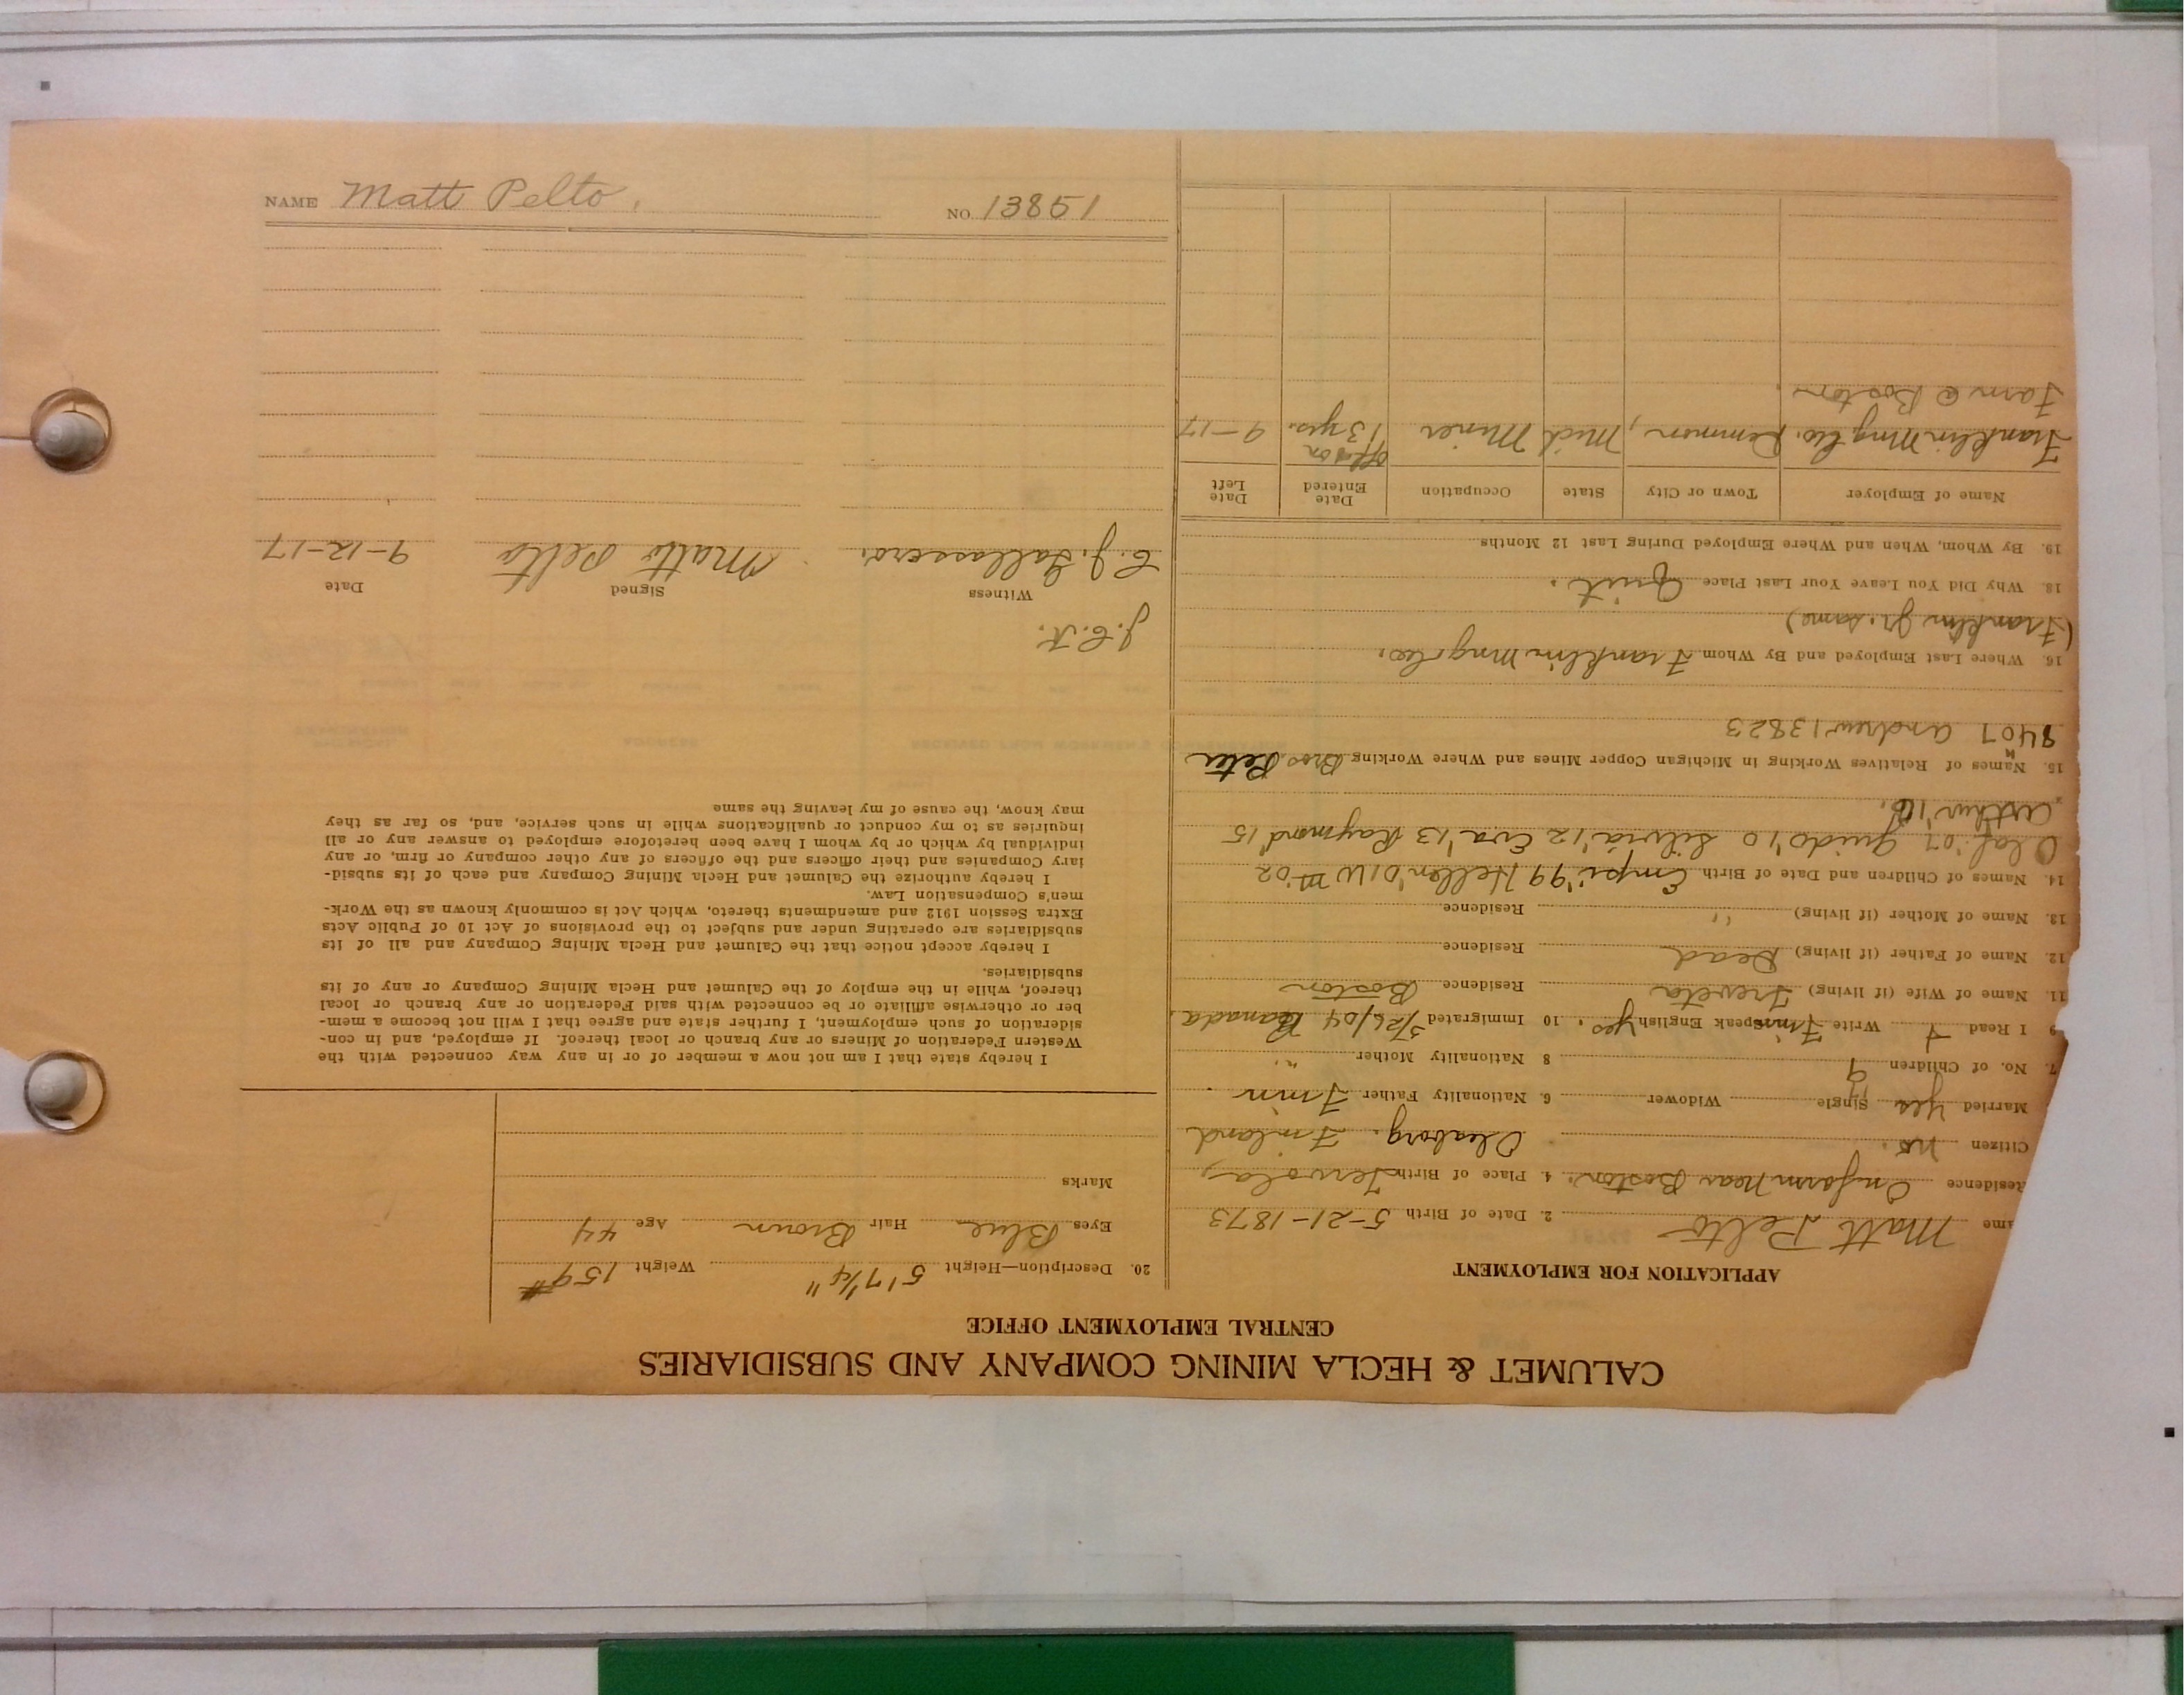 CALUMET & HECLA MINING COMPANY AND SUBSIDIARIES
CENTRAL EMPLOYMENT OFFICE
APPLICATION FOR EMPLOYMENT
ame Matt Pelto 2. Date of Birth 5-21-1873
Residence On farm near Boston. 4. Place of Birth Tervola,
Citizen no. Oleaborg. Finland
Married Yes Single Widower 6. Nationality Father Finn
7. No. of Children 9 8 Nationality Mother "
9 I Read Write Finnish Speak English yes. 10 Immigrated 3/26/04 Canada.
11. Name of Wife (if living) Treveta Residence Boston
12. Name of Father (if living) Dead Residence
13. Name of Mother (if living) " Residence
14. Names of Children and Date of Birth Empi '99 Hellen '01 Wm '02
Olaf '07 Guido '10 Silvia '12 Eva '13 Raymond '15
Arthur '16.
15. Names of Relatives Working in Michigan Copper Mines and Where Working Bros. Peter
8407 Andrew 13823
16. Where Last Employed and By Whom Franklin Mng. Co.
(Franklin Jr. same)
18. Why Did You Leave Your Last Place Quit.
19. By Whom, When and Where Employed During Last 12 Months
Name of Employer Town or City State Occupation Date Entered Date Left
Franklin Mng Co. Demmon, Mich Miner off & on 13 yrs. 9-17
Farm @ Boston.
20. Description—Height 5' 7 1/4" Weight 159#
Eyes Blue Hair Brown Age 44
Marks
I hereby state that I am not now a member of or in any way connected with the
Western Federation of Miners or any branch or local thereof. If employed, and in con-
sideration of such employment, I further state and agree that I will not become a mem-
ber or otherwise affiliate or be connected with said Federation or any branch or local
thereof, while in the employ of the Calumet and Hecla Mining Company or any of its
subsidiaries.
I hereby accept notice that the Calumet and Hecla Mining Company and all of its
subsidiaries are operating under and subject to the provisions of Act 10 of Public Acts
Extra Session 1912 and amendments thereto, which Act is commonly known as the Work-
men's Compensation Law.
I hereby authorize the Calumet and Hecla Mining Company and each of its subsid-
iary Companies and their officers and the officers of any other company or firm, or any
individual by which or by whom I have been heretofore employed to answer any or all
inquiries as to my conduct or qualifications while in such service, and, so far as they
may know, the cause of my leaving the same
J.C.K.
Witness Signed Date
Matt Pelto 9-12-17
NAME Matt Pelto. NO. 13851